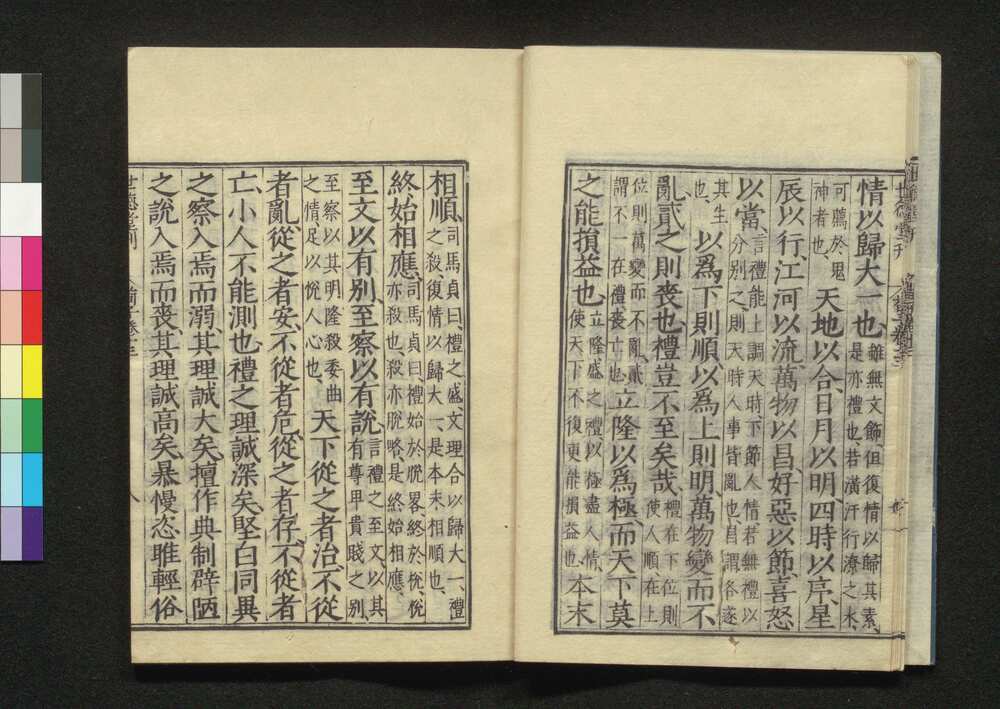 情以歸大一也雖無文飾但復情以歸其素、是亦禮也、若潢汙行潦之水、
可薦於鬼神者也、天地以合、日月以明、四時以序、星
辰以行、江河以流、萬物以昌、好惡以節、喜怒
以當、言禮能上調天時、下節人情、若無禮以分別之、則天時人事皆亂也、昌謂各遂
其生也、以爲下則順、以爲上則明、萬物變而不
亂、貳之則喪也、禮豈不至矣哉、禮在下位則使人順在上
位則萬變而不亂、貳謂不一在禮、喪亡也、立隆以爲極、而天下莫
之能損益也、立隆盛之禮以極盡人情、使天下不復更能損益也、本末
相順、司馬貞曰、禮之盛、文理合以歸大一、禮之殺、復情以歸大一、是本末相順也、
終始相應、司馬貞曰、禮始於脫畧、終於稅、稅亦殺也、殺亦脫略、是終始相應、
至文以有別、至察以有說、言禮之至文、以其有尊卑貴賤之別
至察以其明隆殺委曲之情足以悅人心也、天下從之者治、不從
者亂、從之者安、不從者危、從之者存、不從者
亡、小人不能測也、禮之理誠深矣、堅白同異
之察、入焉而溺、其理誠大矣、擅作典制辟陋
之說、入焉而喪、其理誠高矣、暴慢恣睢輕俗
世德堂刊
八